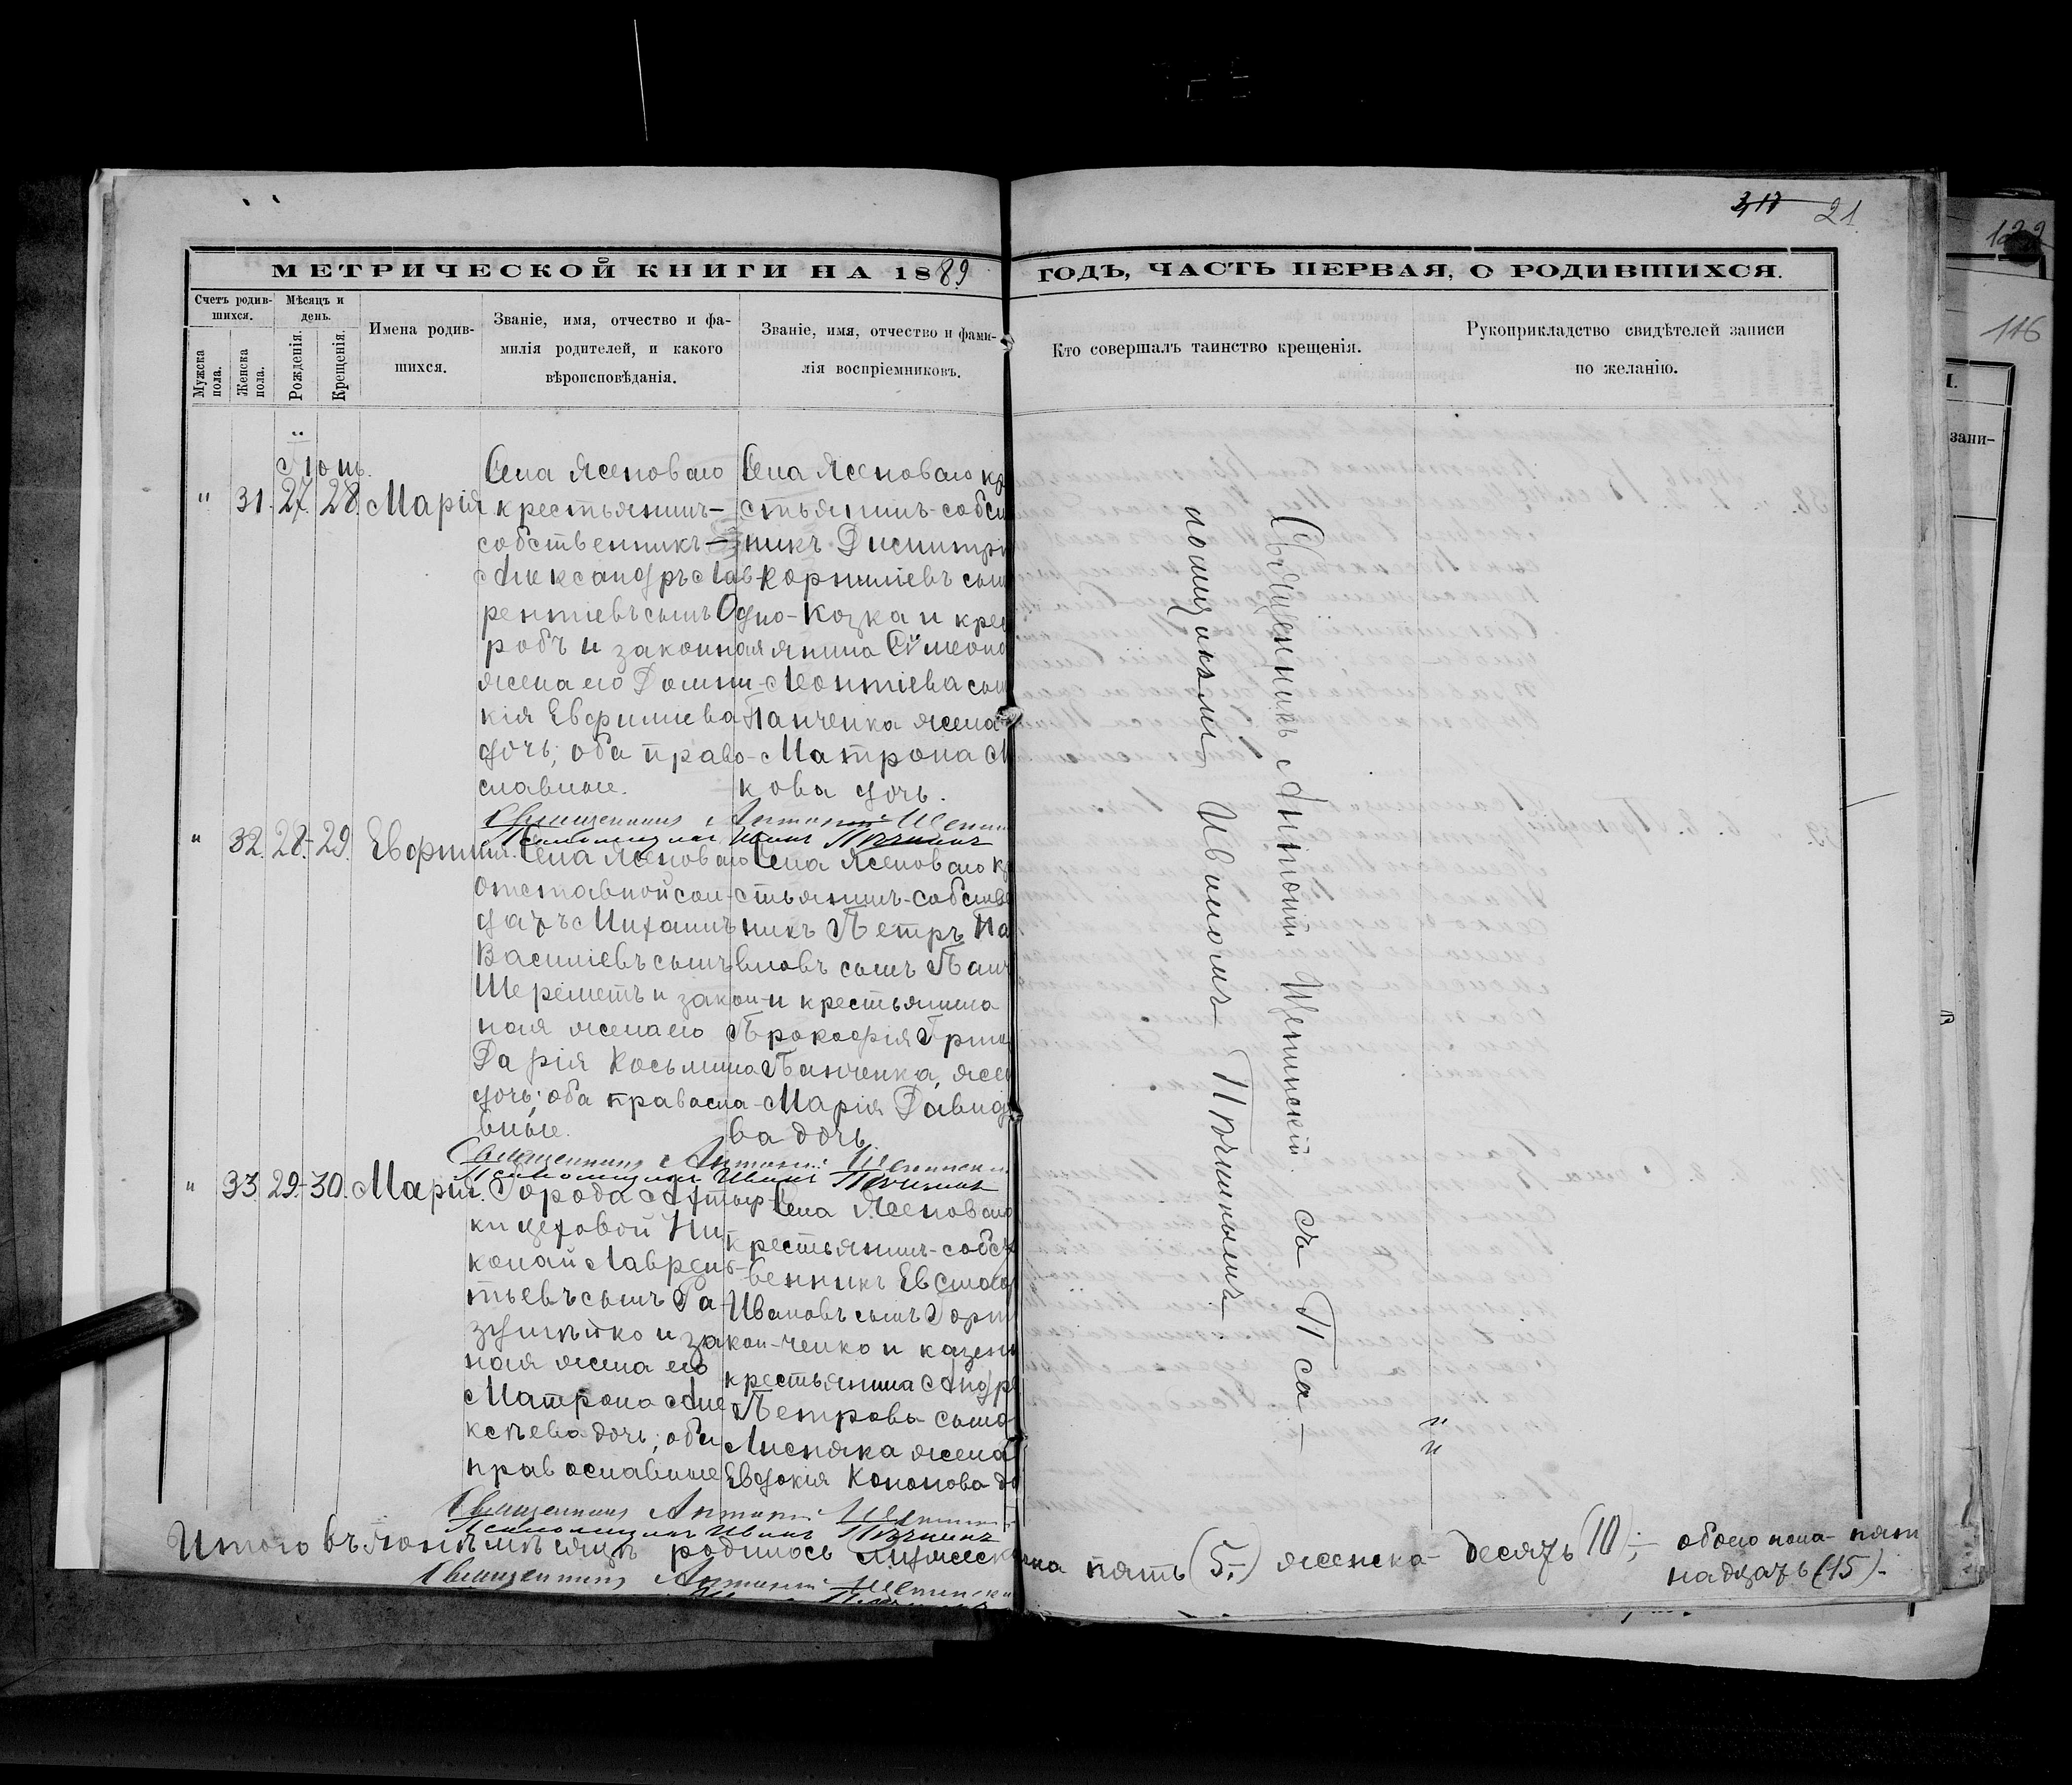 317 21
122
116
МЕТРИЧЕСКОЙ КНИГИ НА 1889 ГОДЪ, ЧАСТЬ ПЕРВАЯ, О РОДИВШИХСЯ.
Счетъ родив-
шихся.
Мужска пола.
Женска пола.
Мѣсяцъ и
день.
Рожденія.
Крещенія.
Имена родив-
шихся.
Званіе, имя, отчество и фа-
милія родителей, и какого
вѣроисповѣданія.
Званіе, имя, отчество и фами-
лія воспріемниковъ.
Кто совершалъ таинство крещенія.
Рукоприкладство свидѣтелей записи
по желанію.
зани-
Іюнь.
" 31. 27. 28. Марія
Села Ясеноваго
крестьянинъ-
собственникъ
Александръ Лав-
рентіевъ сынъ Одно-
робъ и законная
жена его Домни-
кія Евфиміева
дочь; оба право-
славные.
Села Ясеноваго кр
стьянинъ-собст
никъ Димитрі
Корниліевъ сын
Козка и крес
янина Сѵмеона
Леонтіева сын
Панченка жена
Матрона
кова дочь.
Священникъ Антоній Щепин
Псаломщикъ Иванъ Пѣчникъ
" 32. 28. 29. Евфимія.
Села Ясеноваго
отставной сол-
датъ Михаилъ
Василіевъ сынъ
Шереметъ и закон-
ная жена его
Дарія Косьмина
дочь; оба правосла-
вные.
Села Ясеноваго кр
стьянинъ-собстве
никъ Петръ Па
вловъ сынъ Панч
и крестьянина
Прокофія Григ
Панченка, жен
Марія Давидо
ва дочь.
Священникъ Антоній Щепински
Псаломщикъ Иванъ Пѣчникъ
" 33. 29. 30. Марія.
Города Ахтыр-
ки цеховой Ни-
колай Лаврен-
тьевъ сынъ Ра-
зумѣйко и закон-
ная жена его
Матрона Але-
ксѣева дочь; оба
православные
Села Ясеноваго
крестьянинъ-собст
венникъ Евстаф
Ивановъ сынъ Горп
ченко и казенн
крестьянина Андре
Петрова сына
Лисняка жена
Евдокія Кононова до
Священникъ Антоній Щепин
Псаломщикъ Иванъ Пѣчникъ
Священникъ Антоній Щепинскій съ Пса-
ломщикомъ Иваномъ Пѣчникомъ
Итого въ іюнѣ мѣсяцѣ родилось мужеска пола пять (5.-) женска- десять (10);- обоего пола- пят
надцать (15).-
Священникъ Антоній Щепински